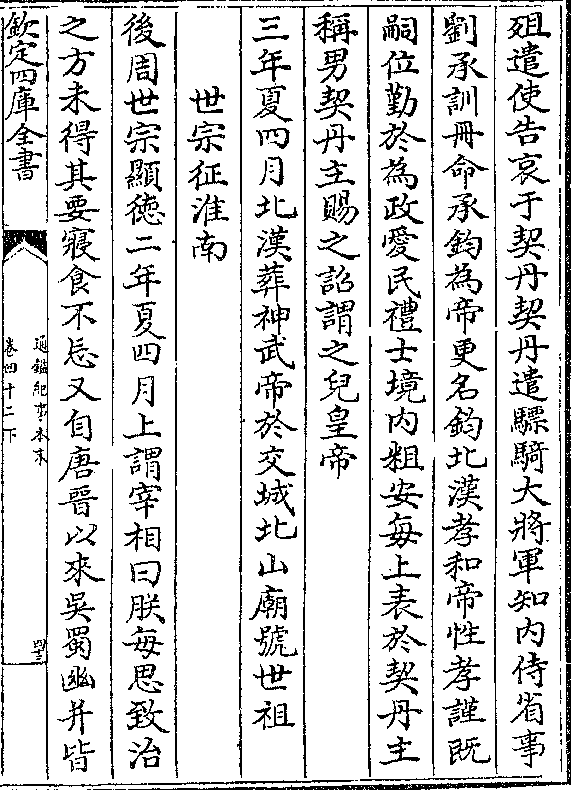 殂遣使告哀于契丹契丹遣驃騎大將軍知内侍省事
劉承訓冊命承鈞為帝更名鈞北漢孝和帝性孝謹既
嗣位勤於為政愛民禮士境内粗安每上表於契丹主
稱男契丹主賜之詔謂之兒皇帝
三年夏四月北漢葬神武帝於交城北山廟號世祖
世宗征淮南
後周世宗顯徳二年夏四月上謂宰相曰朕每思致治
之方未得其要寢食不忘又自唐晉以來吳蜀幽并皆
欽定四庫全書
通鑑紀事本末
卷四十二下
四三